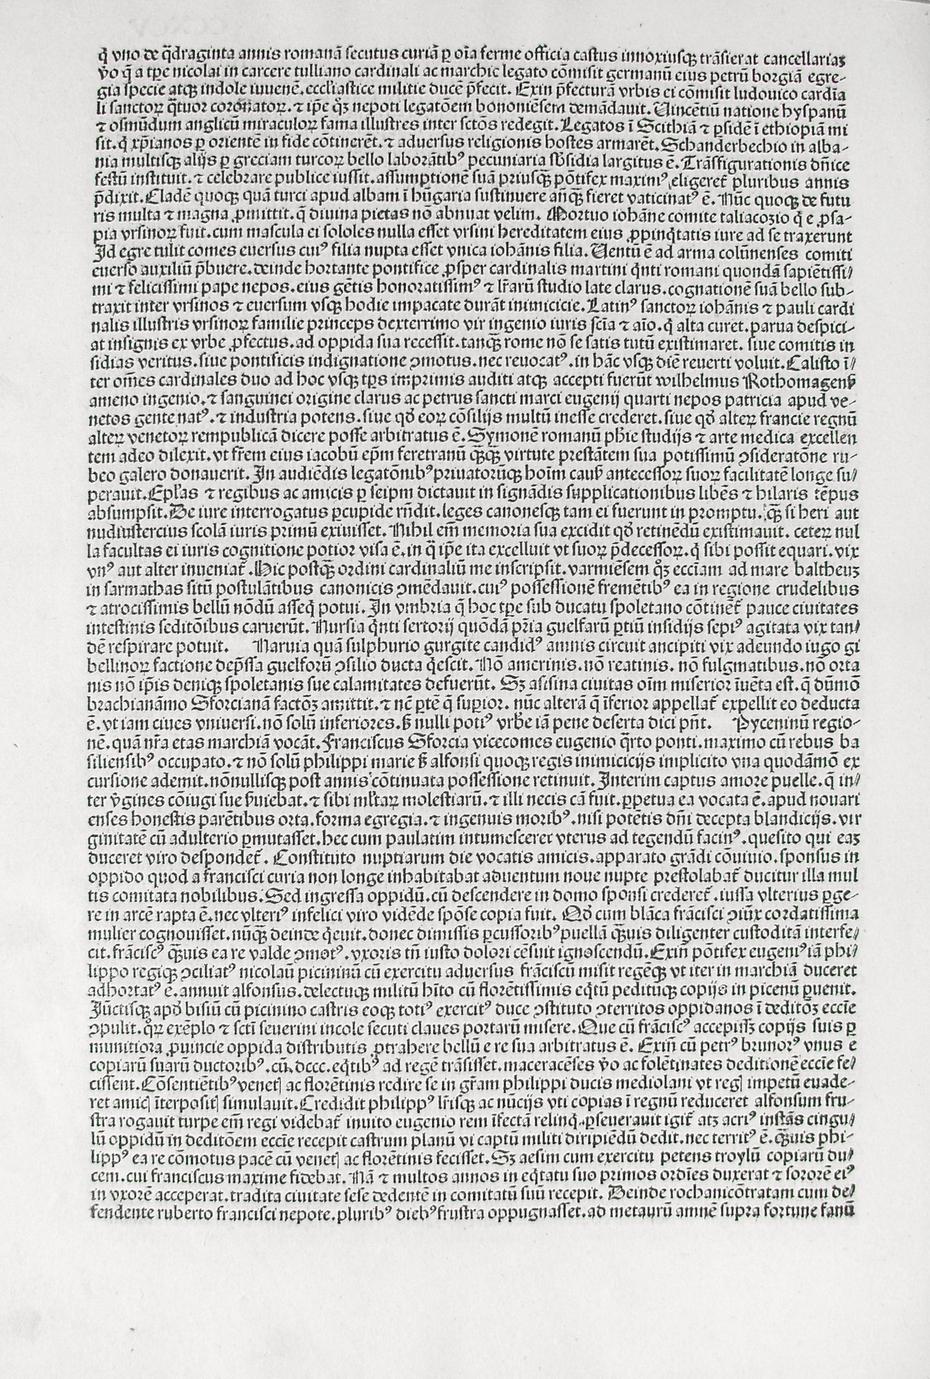 q̄ vno de q̄draginta annis romanā secutus curiā ꝑ oīa ferme officia castus innoxiusqꝫ trāsierat cancellariaꝫ
v̄o q̄ a tꝑe nicolai in carcere tulliano cardinali ac marchie legato cōmisit germanū eius petrū borgiā egre-
gia specie atqꝫ indole iuuenē. ecclesiastice militie ducē p̄fecit. Exin p̄fecturā vrbis ei cōmisit ludouico cardīa
li sanctoꝝ q̄tuor coronatoꝝ. ⁊ ip̄e qꝫ nepoti legatōem bononiēsem demādauit. Vincētiū natione hyspanū
⁊ osmūdum anglicū miraculoꝝ fama illustres inter sctōs redegit. Legatos ī Scithiā ⁊ p̄sidē ī ethiopiā mi
sit. q̇ xp̄ianos ꝑ orientē in fide cōtinerēt. ⁊ aduersus religionis hostes armarēt. Schanderbechio in alba-
nia multisqꝫ alijs ꝑ greciam turcoꝝ bello laborātibꝰ pecuniaria sb̄sidia largitus ē. Trāsfigurationis dn̄ice
festū instituit. ⁊ celebrare publice iussit. assumptionē suā priusqꝫ pōtifex maximꝰ eligeret̄ pluribus annis
p̄dixit. Cladē quoqꝫ quā turci apud albam ī hūgaria sustinuere an̄qꝫ fieret vaticinatꝰ ē. Nūc quoqꝫ de futu
ris multa ⁊ magna ꝓmittit. q̄ diuina pietas nō abnuat velim. Mortuo iohāne comite taliacozio q̇ e ꝓsa-
pia vrsinoꝝ fuit. cum mascula ei sololes nulla esset vrsini hereditatem eius ꝓpinq̄tatis iure ad se traxerunt
Id egre tulit comes euersus cuiꝰ filia nupta esset vnica iohānis filia. Ventū ē ad arma colūnenses comiti
euerso auxiliū p̄buere. deinde hortante pontifice ꝓsper cardinalis martini q̄nti romani quondā sapiētissi/
mi ⁊ felicissimi pape nepos. eius gētis honoratissimꝰ ⁊ lr̄arū studio late clarus. cognationē suā bello sub-
traxit inter vrsinos ⁊ euersum vsqꝫ hodie impacate durāt inimicicie. Latinꝰ sanctoꝝ iohānis ⁊ pauli cardi
nalis illustris vrsinoꝝ familie princeps dexterrimo vir ingenio iuris sciā ⁊ aīo. q̇ alta curet. parua despici-
at insignis ex vrbe ꝓfectus. ad oppida sua recessit. tanqꝫ rome nō se satis tutū existimaret. siue comitis in
sidias veritus. siue pontificis indignatione ꝯmotus. nec reuocatꝰ. in hāc vsqꝫ diē reuerti voluit. Calisto ī/
ter om̄es cardinales duo ad hoc vsqꝫ tꝑs imprimis auditi atqꝫ accepti fuerūt wilhelmus Rothomageñ
ameno ingenio. ⁊ sanguinei origine clarus ac petrus sancti marci eugenij quarti nepos patricia apud ve-
netos gente natꝰ. ⁊ industria potens. siue qd̄ eoꝝ cōsilijs multū inesse crederet. siue qd̄ alteꝝ francie regnū
alteꝝ venetoꝝ rempublicā dicere posse arbitratus ē. Symonē romanū phīe studijs ⁊ arte medica excellen
tem adeo dilexit. vt fr̄em eius iacobū ep̄m feretranū q̄qꝫ virtute prestātem sua potissimū ꝯsideratōne ru-
beo galero donauerit. In audiēdis legatōnibꝰ priuatoruꝫqꝫ hoīm caus̄ antecessoꝝ suoꝝ facilitatē longe su/
perauit. Ep̄las ⁊ regibus ac amicis ꝑ seipm̄ dictauit in signādis supplicationibus libēs ⁊ hilaris tēpus
absumpsit. De iure interrogatus ꝑcupide rn̄dit. leges canonesqꝫ tam ei fuerunt in promptu. q̄ꝫ si heri aut
nudiustercius scolā iuris primū exiuisset. Nihil em̄ memoria sua excidit qd̄ retinēdū existimauit. ceteꝝ nul
la facultas ei iuris cognitione potior visa ē. in q̄ ip̄e ita excelluit vt suoꝝ p̄decessoꝝ. q̇ sibi possit equari. vix
vnꝰ aut alter inueniat̄. Hic postqꝫ ordini cardinaliū me inscripsit. varmiēsem qꝫ eccīam ad mare baltheuꝫ
in sarmathas sitū postulātibus canonicis ꝯmēdauit. cuiꝰ possessionē frementibꝰ ea in regione crudelibus
⁊ atrocissimis bellū nōdū asseq̇ potui. In vmbria q̄ hoc tꝑe sub ducatu spoletano cōtinet̄ pauce ciuitates
intestinis seditōibus caruerūt. Nursia q̄nti sertorij quōdā pr̄ia guelfarū ꝑtiū insidijs sepiꝰ agitata vix tan/
dē respirare potuit. Naruia quā sulphurio gurgite candidꝰ amnis circuit ancipiti vix adeundo iugo gi
bellinoꝝ factione dep̄ssa guelforū ꝯsilio ducta q̇escit. Nō amerinis. nō reatinis. nō fulgmatibus. nō orta
nis nō ip̄is deniqꝫ spoletanis sue calamitates defuerūt. Sꝫ asisina ciuitas oīm miserior īuēta est. q̄ dūmō
brachianāmo Sforcianā factōꝫ amittit. ⁊ nē ꝑtē q̄ supior. nūc alterā q̄ īferior appellat̄ expellit eo deducta
ē. vt iam ciues vniuersi. nō solū inferiores. s̄ nulli potiꝰ vrbē iā pene deserta dici pn̄t. Pyceninū regio-
nē. quā nr̄a etas marchiā vocāt. Franciscus Sforcia vicecomes eugenio q̄rto ponti. maximo cū rebus ba
siliensibꝰ occupato. ⁊ nō solū philippi marie s̄ alfonsi quoqꝫ regis inimicicijs implicito vna quodāmō ex
cursione ademit. nōnullisqꝫ post annis cōtinuata possessione retinuit. Interim captus amore puelle. q̄ in/
ter v̄gines cōiugi sue s̄uiebat. ⁊ sibi ml̄taꝝ molestiarū. ⁊ illi necis cā fuit. ꝑpetua ea vocata ē. apud nouari
enses honestis parētibus orta. forma egregia. ⁊ ingenuis moribꝰ. nisi potētis dn̄i decepta blandicijs. vir
ginitatē cū adulterio ꝑmutasset. hec cum paulatim intumesceret vterus ad tegendū facinꝰ. quesito qui eaꝫ
duceret viro despondet̄. Constituto nuptiarum die vocatis amicis. apparato grādi cōuiuio. sponsus in
oppido quod a francisci curia non longe inhabitabat aduentum noue nupte prestolabat̄ ducitur illa mul
tis comitata nobilibus. Sed ingressa oppidū. cū descendere in domo sponsi crederet̄. iussa vlterius ꝑge-
re in arcē rapta ē. nec vlteriꝰ infelici viro vidēde spōse copia fuit. Qd̄ cum blāca frācisci ꝯiūx cordatissima
mulier cognouisset. nūqꝫ deinde q̇euit. donec dimissis ꝑcussoribꝰ puellā q̄ꝫuis diligenter custoditā interfe/
cit. frāciscꝰ q̄ꝫuis ea re valde ꝯmotꝰ. vxoris tn̄ iusto dolori cēsuit ignoscendū. Exin̄ pōtifex eugeniꝰ iā phi/
lippo regiqꝫ ꝯciliatꝰ nicolaū picininū cū exercitu aduersus frāciscū misit regēqꝫ vt iter in marchiā duceret
adhortatꝰ ē. annuit alfonsus. delectuqꝫ militū hīto cū florētissimis eq̄tū peditūqꝫ copijs in picenū ꝑuenit.
Jūctisqꝫ apd̄ bisiū cū picinino castris eoqꝫ totiꝰ exercitꝰ duce ꝯstituto ꝯterritos oppidanos ī deditōꝫ eccīe
ꝯpulit. qꝝ exēplo ⁊ sctī seuerini incole secuti claues portarū misere. Que cū frāciscꝰ accepissꝫ copijs suis ꝑ
munitiora ꝓuincie oppida distributis ꝓtrahere bellū e re sua arbitratus ē. Exin̄ cū petrꝰ brunorꝰ vnus e
copiarū suarū ductoribꝰ. cū dccc. eq̄tibꝰ ad regē trāsisset. maceracēses v̄o ac folētinates deditionē eccīe fe/
cissent. Cōsentiētibꝰ venetꝭ ac florētinis redire se in gr̄am philippi ducis mediolani vt regꝭ impetū euade-
ret amicꝭ īterpositꝭ simulauit. Credidit philippꝰ lr̄isqꝫ ac nūcijs vti copias ī regnū reduceret alfonsum fru-
stra rogauit turpe em̄ regi videbat̄ inuito eugenio rem īfectā relinq̇. ꝑseuerauit igit̄ atꝫ acrꝰ instās cingu/
lū oppidū in deditōem eccīe recepit castrum planū vi captū militi diripiēdū dedit. nec territꝰ ē. q̄ꝫuis phi-
lippꝰ ea re cōmotus pacē cū venetꝭ ac florētinis fecisset. Sꝫ aesim cum exercitu petens troylū copiarū du/
cem. cui franciscus maxime fidebat. Nā ⁊ multos annos in eq̄tatu suo primos ordīes duxerat ⁊ sororē eiꝰ
in vxorē acceperat. tradita ciuitate sese dedentē in comitatū suū recepit. Deinde rochanicōtratam cum de/
fendente ruberto francisci nepote. pluribꝰ diebꝰ frustra oppugnasset. ad metaurū amnē supra fortune fanū